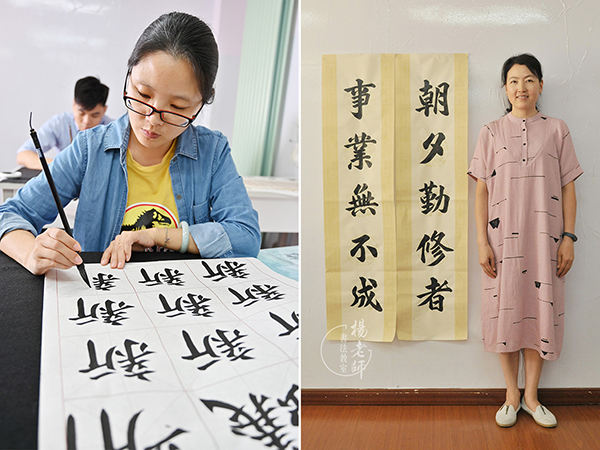 新 新 新
新 新 新
新 新 新
新 義
朝夕勤修者
事業無不成
楊老師
書法教室